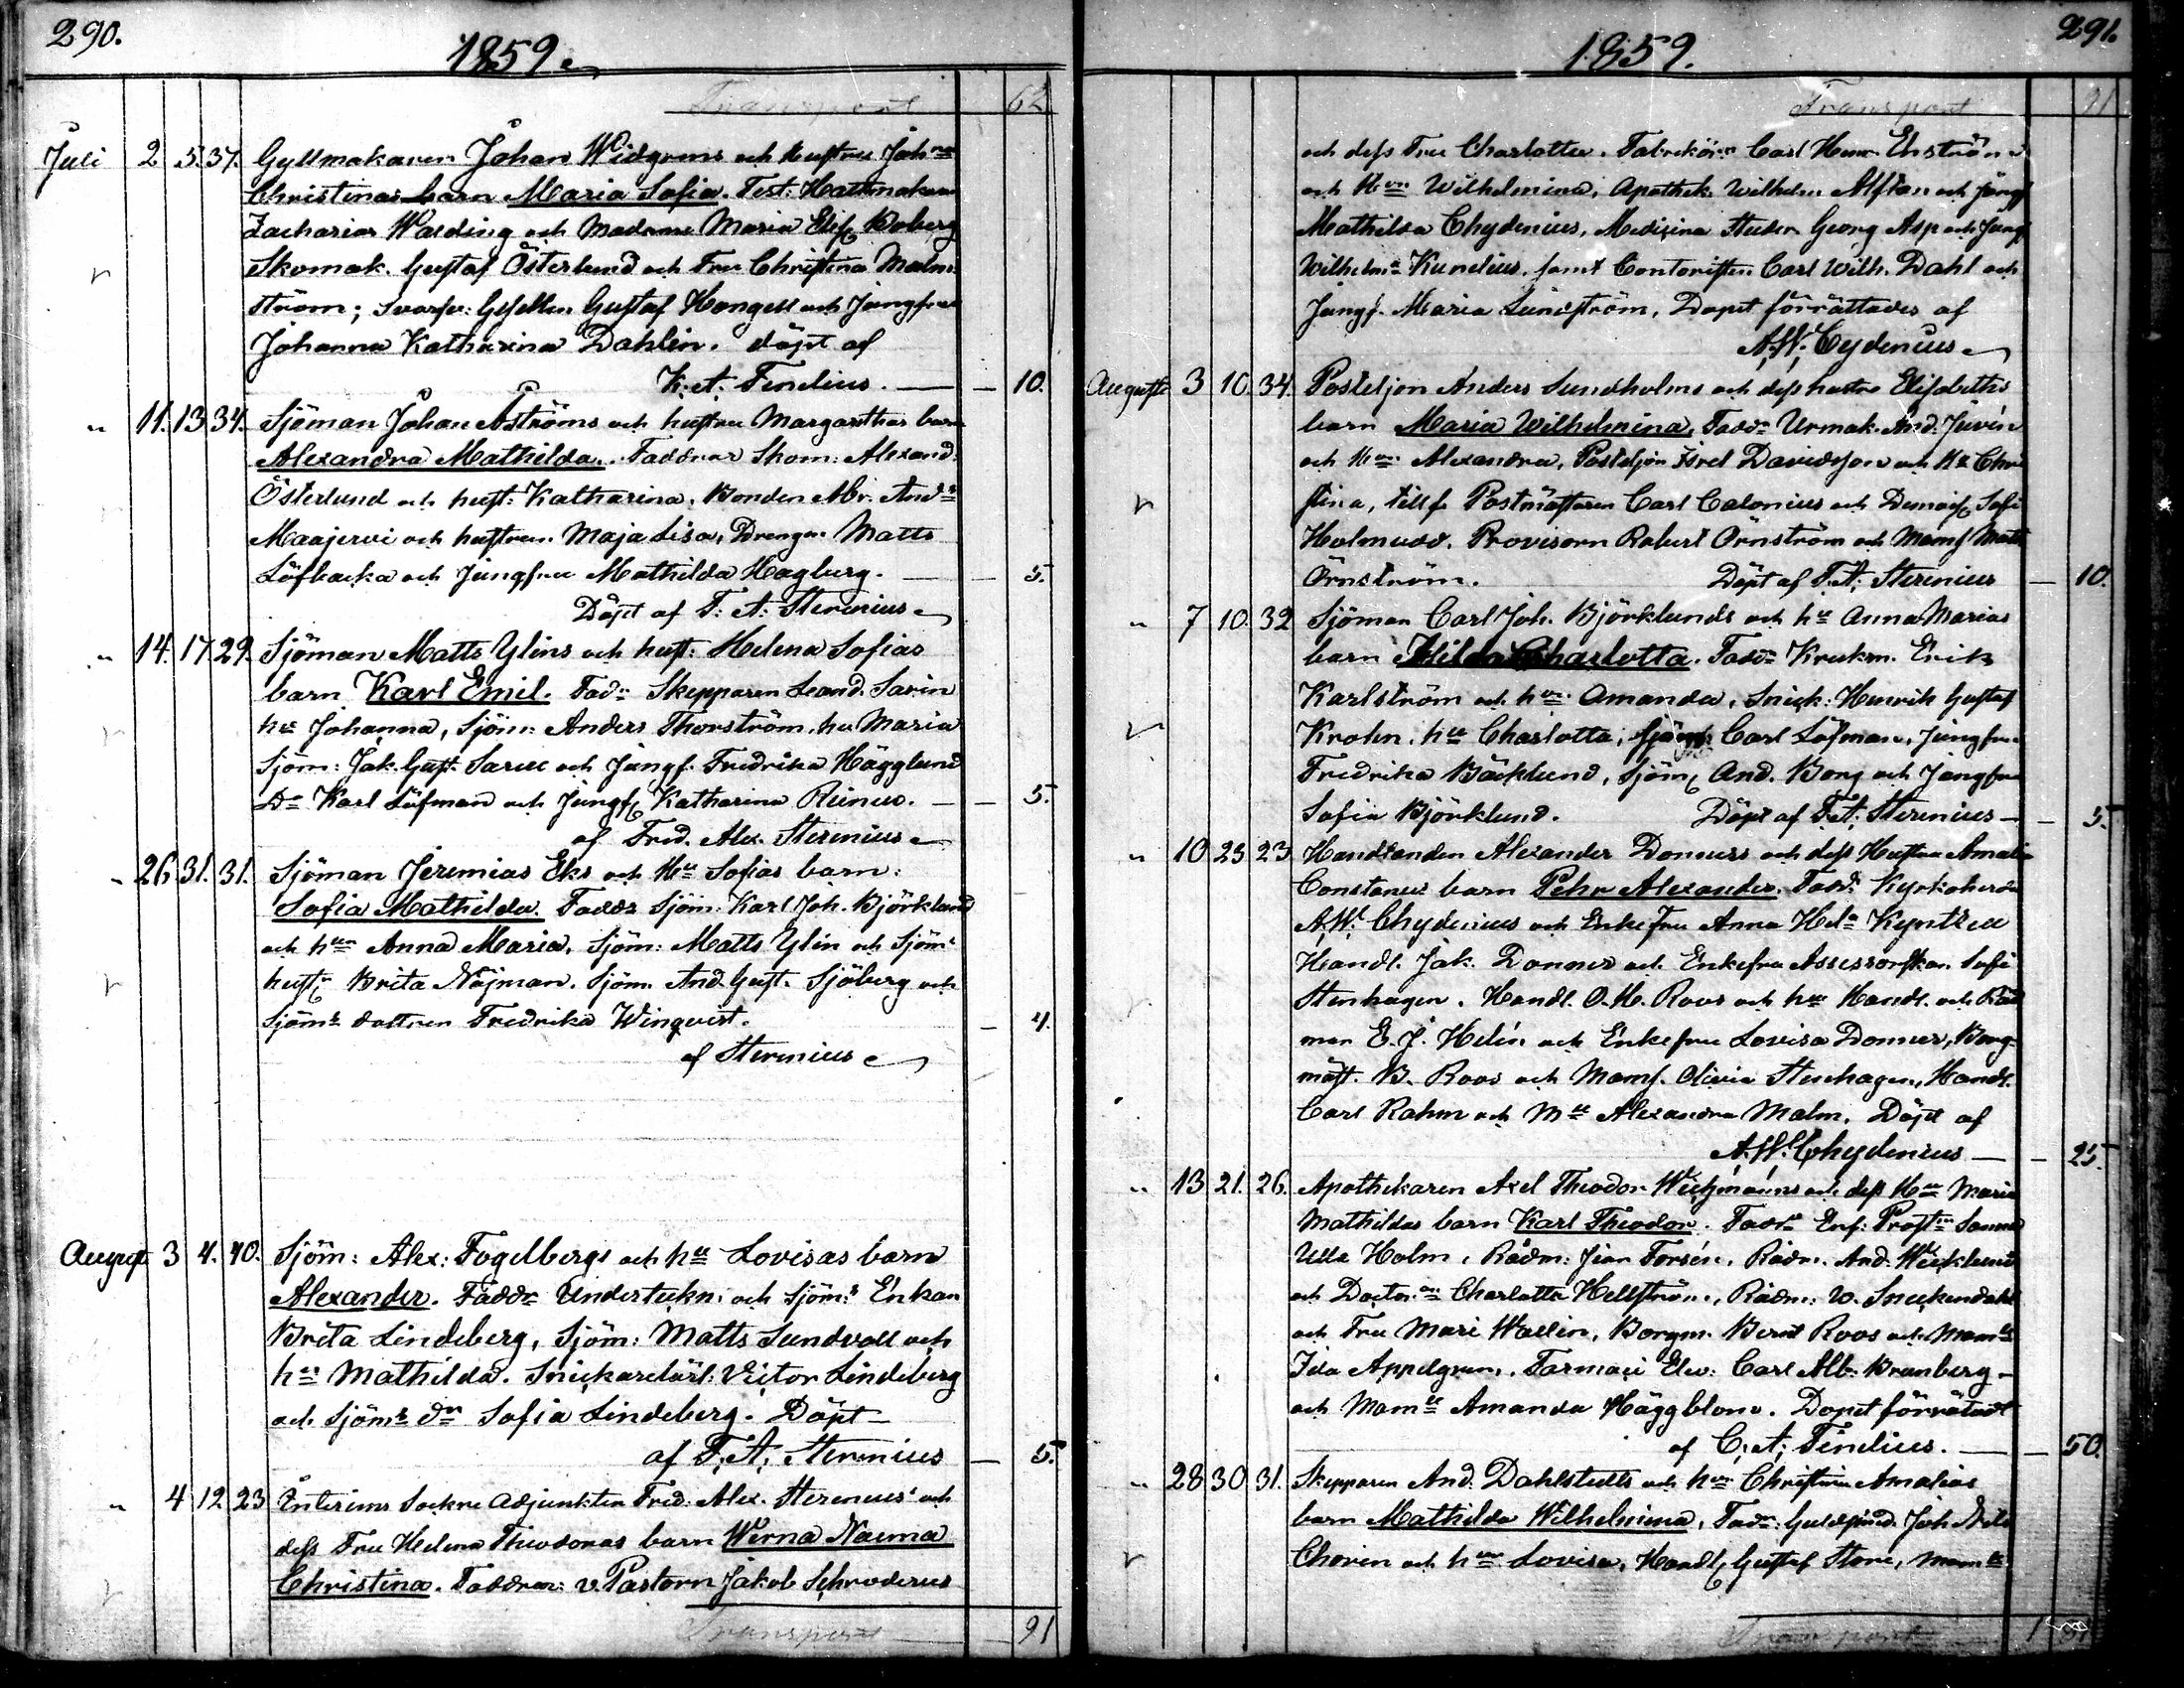 290.
1859.
Transport 62
Juli 2 5. 37. Gyllmakaren Johan Widgrens och hustru Joh:na
Christinas barn Maria Sofia. Test: Hattmakaren
Zacharias Warding och Madame Maria Elis. Boberg
Skomak. Gustaf Österlund och Fru Christina Malm-
ström; Svarfv: Gesellen Gustaf Hongell och Jungfru
Johanna Katharina Dahlin. döpt af
K. A. Tenelius. — 10.
" 11. 13 34. Sjöman Johan Åströms och hustru Margarethas barn
Alexandra Mathilda. Faddrar Skom: Alexand.
Österlund och hust: Katharina, Bonden Abr. And:s
Maajervi och hustrun Maja Lisa, Drengen Matts
Löfbacka och Jungfru Mathilda Hagberg. — 5.
Döpt af F. A. Sterenius
" 14. 17. 29. Sjöman Matts Ylens och hust: Helena Sofias
barn Karl Emil. Fad:r Skepparen Leand. Sarin
h:u Johanna, Sjöm: Anders Thorström, hu Maria
Sjöm: Jak. Gust. Sarin och Jungf. Fredrika Hägglund
D:o Karl Löfman och Jungf. Katharina — 5.
af Fred. Alex. Sterenius
" 26. 31. 31. Sjöman Jeremias Eks och H:u Sofias barn:
Sofia Mathilda. Faddr Sjöm: Karl Joh. Björklund
och h:un Anna Maria, Sjöm: Matts Ylin och Sjöm:s
hust: Brita Nöjman. Sjöm. And. Gust. Sjöberg och
Sjöm:s dottren Fredrika Winqvist. — 4.
af Sterenius
August 3 4. 40. Sjöm: Alex: Fogelbergs och h:u Lovisas barn
Alexander. Fadd:r Undertekn: och Sjöm:s Enkan
Brita Lindeberg, Sjöm: Matts Sundvall och
h:u Mathilda. Snickarelärl: Victor Lindeberg
och Sjöm:s d:r Sofia Lindeberg. Döpt
af F. A. Sterenius — 5.
" 4 12 23 Interims Sockne Adjunkten Fred. Alex. Sterenius' och
dess Fru Helena Theodoras barn Werna Naema
Christina. Faddrar: v. Pastorn Jakob Schroderus
Transport 91
291.
1859.
Transport 91
och dess Fru Charlotta. Fabrikören Carl Henr. Enström
och H:un Wilhelmina, Apothek. Wilhelm Alftan och Jungf
Mathilda Chydenius, Medicina Studer. Georg Asp och Jungf
Wilhelm:a Kunelius, samt Contoristen Carl Wilh. Dahl och
Jungf. Maria Lundström, Dopet förrättades af
A. W. Cydenius
Augusti 3 10. 34. Posteljon Anders Sundholms och dess hustru Elisabeths
barn Maria Wilhelmina, Fadd:r Urmak. And. Juvén
och H:un Alexandra, Posteljon Isrel Davidsson och H:u Chri
stina, tillf. Postmästaren Carl Calonius och Demois. Sofi
Holmudd. Provisorn Robert Örnström och Mams Math
Örnström. Döpt af F. A. Sterenius — 10.
" 7 10. 32 Sjöman Carl Joh. Björklunds och h:u Anna Marias
barn Hilda Charlotta. Fadd:r Krukm. Erik
Karlström och h:un Amanda, Snick: Henrik Gustaf
Krohn, h:u Charlotta; Sjöm: Carl Löfman, Jungfru
Fredrika Bäcklund, Sjöm. And. Borg och Jungfru
Sofia Björklund. Döpt af F. A. Sterenius — 5.
" 10 23 23 Handlanden Alexander Donners och dess Hustru Amalia
Constances barn Pehr Alexander. Fadd: Kyrkoherden
A. W. Chydenius och Enkefru Anna Hel:a Kyntzell
Handl. Jak. Donner och Enkefru Assessorskan Sofi
Stenhagen. Handl. O. H. Roos och h:u Handl. och Råd
man E. J. Helén och Enkefru Lovisa Donner, Borg-
mäst. B. Roos och Mams. Olivia Stenhagen, Handl.
Carl Rahm och M:ll Alexandra Malm. Döpt af
A. W. Chydenius — 25.
" 13 21. 26. Apothekaren Axel Theodor Weitzmanns och dess H:u Maria
Mathildas barn Karl Theodor. Fadd:r Enf: Prost:n Sanna
Ulla Holm, Rådm: Jean Forsén, Rådm. And. Wicklund
och Doctor:n Charlotta Hellström, Rådm: W. Sneckendahl
och Fru Mari Wallin, Borgm. Bernt Roos och Mam:ll
Ida Appelgren, Farmaci Elev: Carl Alb. Branberg
och Mam:ll Amanda Häggblom. Dopet förrättadt
af C. A. Tenelius. — 50.
" 28 30 31. Skepparen And. Dahlstedts och h:un Christina Amalias
barn Mathilda Wilhelmina, Fadr: Guldsmed. Joh Nils
Chorin och h:un Lovisa, Handl. Gustaf Store, Mam:ll
Transport